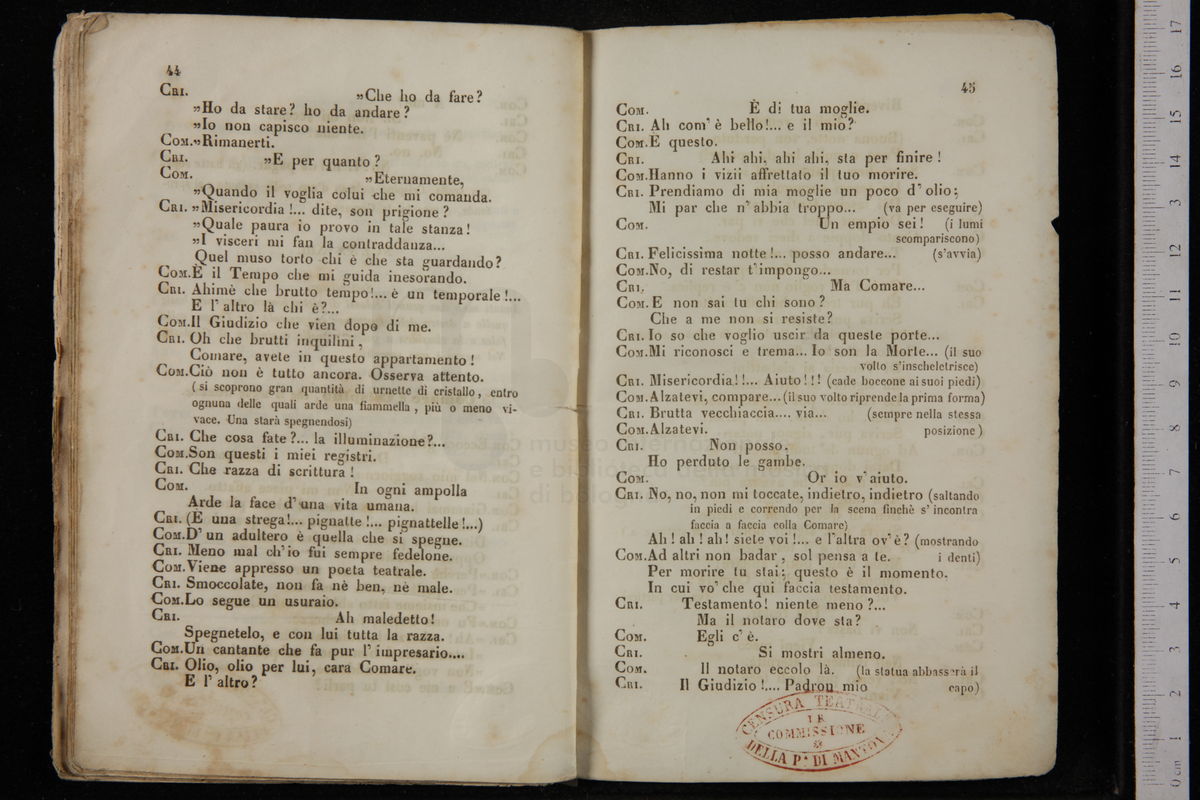 44
CRI. »Che ho da fare?
»Ho da stare? ho da andare?
»Io non capisco niente.
COM.»Rimanerti.
CRI. »E per quanto?
COM. »Eternamente,
»Quando il voglia colui che mi comanda.
CRI. »Misericordia!... dite, son prigione?
»Quale paura io provo in tale stanza!
»I visceri mi fan la contraddanza...
Quel muso torto chi è che sta guardando?
COM.È il Tempo che mi guida inesorando.
CRI. Ahimè che brutto tempo!... è un temporale!...
E l' altro là chi è?...
COM.Il Giudizio che vien dopo di me.
CRI. Oh che brutti inquilini,
Comare, avete in questo appartamento!
COM.Ciò non è tutto ancora. Osserva attento.
(si scoprono gran quantità di urnette di cristallo, entro
ognuna delle quali arde una fiammella, più o meno vi-
vace. Una starà spegnendosi)
CRI. Che cosa fate?... la illuminazione?...
COM.Son questi i miei registri.
CRI. Che razza di scrittura!
COM. In ogni ampolla
Arde la face d' una vita umana.
CRI. (È una strega!... pignatte!... pignattelle!...)
COM.D' un adultero è quella che si spegne.
CRI. Meno mal ch' io fui sempre fedelone.
COM.Viene appresso un poeta teatrale.
CRI. Smoccolate, non fa nè ben, nè male.
COM.Lo segue un usuraio.
CRI. Ah maledetto!
Spegnetelo, e con lui tutta la razza.
COM.Un cantante che fa pur l' impresario....
CRI. Olio, olio per lui, cara Comare.
E l' altro?
45
COM. È di tua moglie.
CRI. Ah com' è bello!... e il mio?
COM.È questo.
CRI. Ahi ahi, ahi ahi, sta per finire!
COM.Hanno i vizii affrettato il tuo morire.
CRI. Prendiamo di mia moglie un poco d' olio;
Mi par che n' abbia troppo... (va per eseguire)
COM. Un empio sei! (i lumi
scompariscono)
CRI. Felicissima notte!... posso andare... (s'avvia)
COM.No, di restar t'impongo...
CRI. Ma Comare...
COM.E non sai tu chi sono?
Che a me non si resiste?
CRI. Io so che voglio uscir da queste porte...
COM.Mi riconosci e trema... Io son la Morte... (il suo
volto s'inscheletrisce)
CRI. Misericordia!!... Aiuto!!! (cade boccone ai suoi piedi)
COM.Alzatevi, compare... (il suo volto riprende la prima forma)
CRI. Brutta vecchiaccia.... via... (sempre nella stessa
COM.Alzatevi. posizione)
CRI. Non posso.
Ho perduto le gambe.
COM. Or io v' aiuto.
CRI. No, no, non mi toccate, indietro, indietro (saltando
in piedi e correndo per la scena finchè s' incontra
faccia a faccia colla Comare)
Ah! ah! ah! siete voi!... e l'altra ov' è? (mostrando
COM.Ad altri non badar, sol pensa a te. i denti)
Per morire tu stai; questo è il momento,
In cui vo' che qui faccia testamento.
CRI. Testamento! niente meno?...
Ma il notaro dove sta?
COM. Egli c' è.
CRI. Si mostri almeno.
COM. Il notaro eccolo là. (la statua abbasserà il
CRI. Il Giudizio!.... Padron mio capo)
CENSURA TEATRALE
I R
COMMISSIONE
DELLA P.ª DI MANTOVA